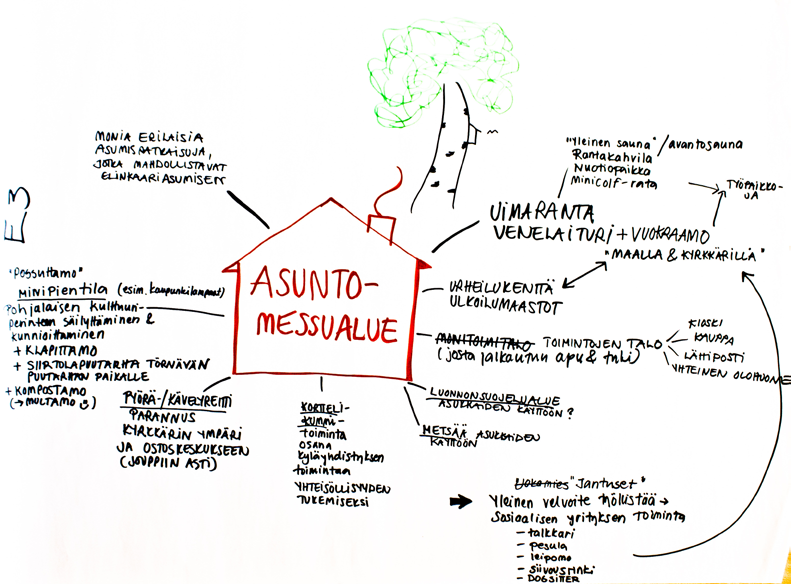 E3
MONIA ERILAISIA
ASUMISRATKAISUJA,
JOTKA MAHDOLLISTAVAT
ELINKAARIASUMISEN
"Yleinen sauna" / avantosauna
Rantakahvila
Nuotiopaikka
Minigolf-rata
TYÖPAIKKO-
JA
UIMARANTA
VENELAITURI + VUOKRAAMO
"MAALLA & KYRKKÄRILLÄ"
ASUNTO-
MESSUALUE
"Possuttamo"
MINIPientila (esim. kaupunkilampaat)
Pohjalaisen kulttuuri-
perinteen säilyttäminen &
kunnioittaminen
+ KLAPITTAMO
+ SIIRTOLAPUUTARHA TÖRNÄVÄN
PUUTARHAN PAIKALLE
+ KOMPOSTAMO
(→ MULTAMO)
URHEILUKENTTÄ
ULKOILUMAASTOT
MONITOIMITALO TOIMINTOJEN TALO
(josta jalkautuu apu & tuki)
KIOSKI
KAUPPA
LÄHIPOSTI
YHTEINEN OLOHUONE
LUONNONSUOJELUALUE
ASUKKAIDEN KÄYTTÖÖN?
METSÄÄ ASUKKAIDEN
KÄYTTÖÖN
PYÖRÄ-/KÄVELYREITTI
PARANNUS
KYRKKÄRIN YMPÄRI
JA OSTOSKESKUKSEEN
(JOUPPIIN ASTI)
KORTTELI-
KUMMI-
toiminta
osana
kyläyhdistyksen
toimintaa
YHTEISÖLLISYYDEN
TUKEMISEKSI
"Jantuset"
Yleinen velvoite työllistää →
Sosiaalisen yrityksen toiminta
- talkkari
- pesula
- leipomo
- siivousrinki
- DOGSITTER